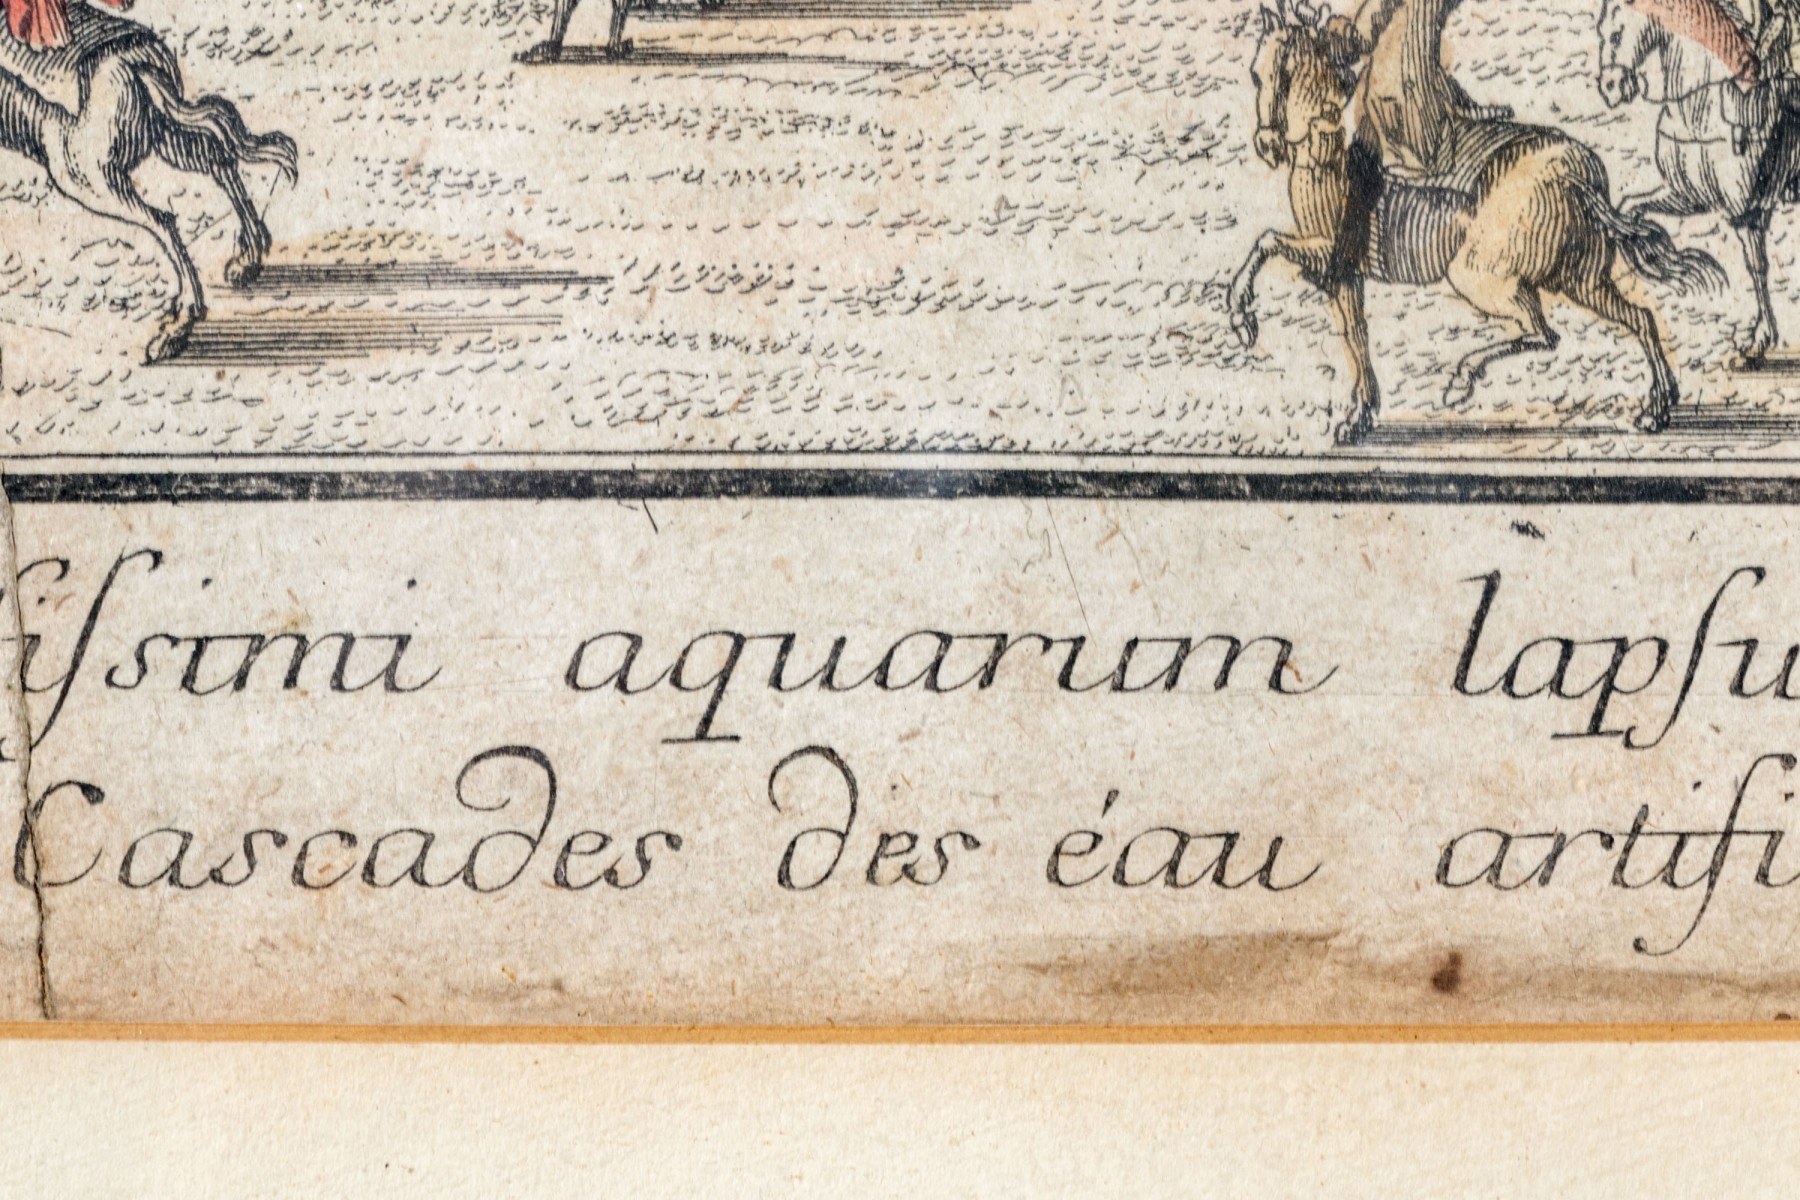 iſsimi aquarum lapſu
Cascades des éau artifi